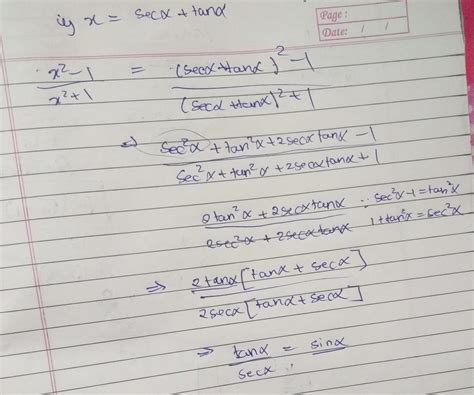 Page:
Date: / /
if x = secα + tanα
x²-1 / x²+1 = (secα + tanα)² - 1 / (secα + tanα)² + 1
⇒ sec²α + tan²α + 2secα tanα - 1 / sec²α + tan²α + 2secα tanα + 1
2tan²α + 2secα tanα / 2sec²α + 2secα tanα ∵ sec²α - 1 = tan²α
1 + tan²α = sec²α
⇒ 2tanα [tanα + secα] / 2secα [tanα + secα]
⇒ tanα / secα = sinα